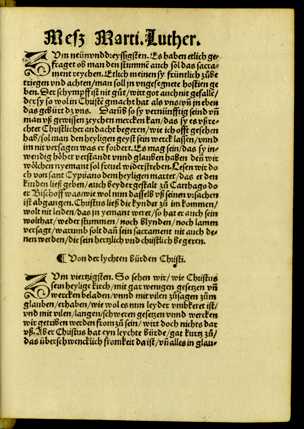 Mesz Marti. Luther.
Zum neünunddreyssigsten. Es haben etlich ge-
fraget ob man den stummē auch söl das sacra-
ment reychen. Etlich meinen sy früntlich zů be-
triegen vnd achten / man soll jn vngesegnete hostien ge-
ben. Der schympff ist nit gůt / wirt got auch nit gefallē /
der sy so wol in Christē gemacht hat als vns / vn̄ jn eben
das gebürt dz vns. Darūb so sy vernünfftig seind vn̄
man vß gewissen zeychen mercken kan / das sy es vß re-
chter Christlicher andacht begeren / wie ich offt gesehen
hab / sol man dem heyligen geyst sein werck lassen / vnnd
im nit versagen was er fordert. Es mag sein / das sy in-
wendig höher verstandt vnnd glauben haben den̄ wir
wölchen nyemant sol freuel widerstreben. Lesen wir do
ch von sant Cypriano dem heyligen marter / das er den
kinden ließ geben / auch beyder gestalt zů Carthago do
er Bischoff was / wie wol nun dasselb vß seinen vrsachen
ist abgangen. Christus ließ die kynder zů im kommen /
wolt nit leiden / das jn yemant weret / so hat er auch sein
wolthat / weder stummen / noch blynden / noch lamen
versagt / warumb solt dan̄ sein sacrament nit auch de-
nen werden / die sein hertzlich vnd christlich begeren.
¶ Von der lychten Bürden Christi.
Zum viertzigsten. So sehen wir / wie Christus
sein heylig kirch / mit gar wenigen gesetzen vn̄
wercken beladen / vnnd mit vilen zůsagen zům
glauben / erhaben / wie wol es nun leyder vmbkeret ist /
vnd mit vilen / langen / schweren gesetzen vnnd wercken
wir getriben werden from zů sein / wirt doch nichts dar
vß. Aber Christus hat eyn leychte bürde / gat kurtz zů /
das überschwencklich fromkeit da ist / vn̄ alles in glau-